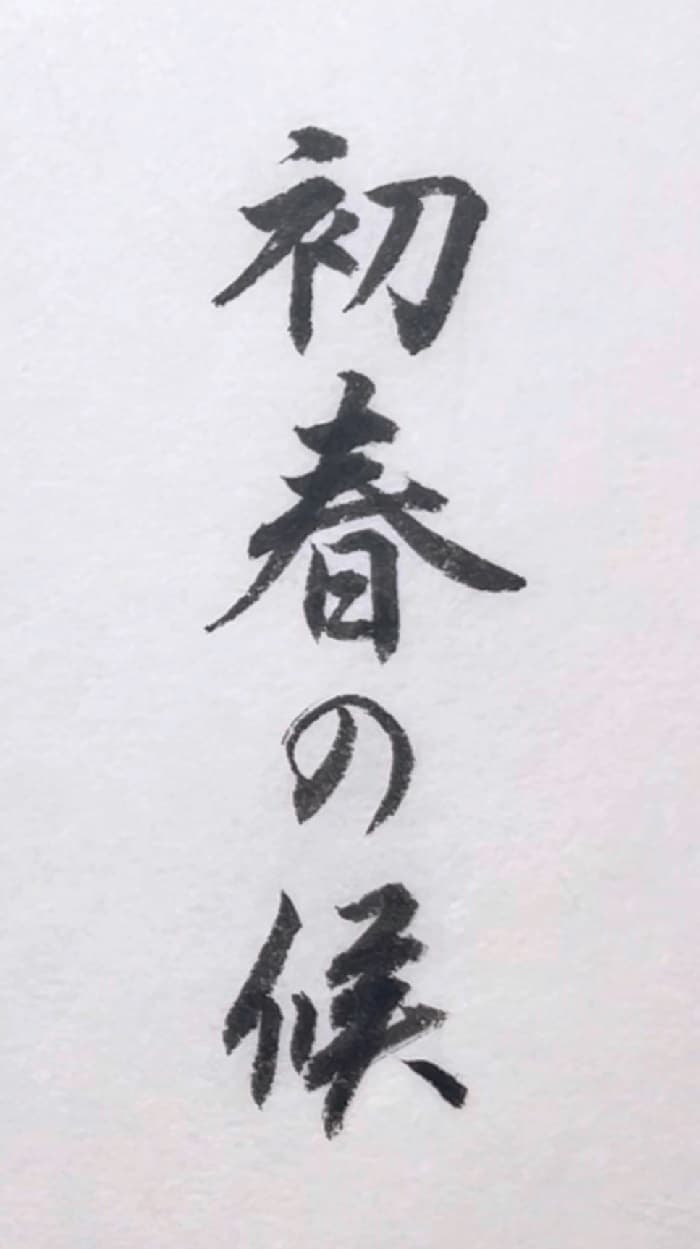 初春の候